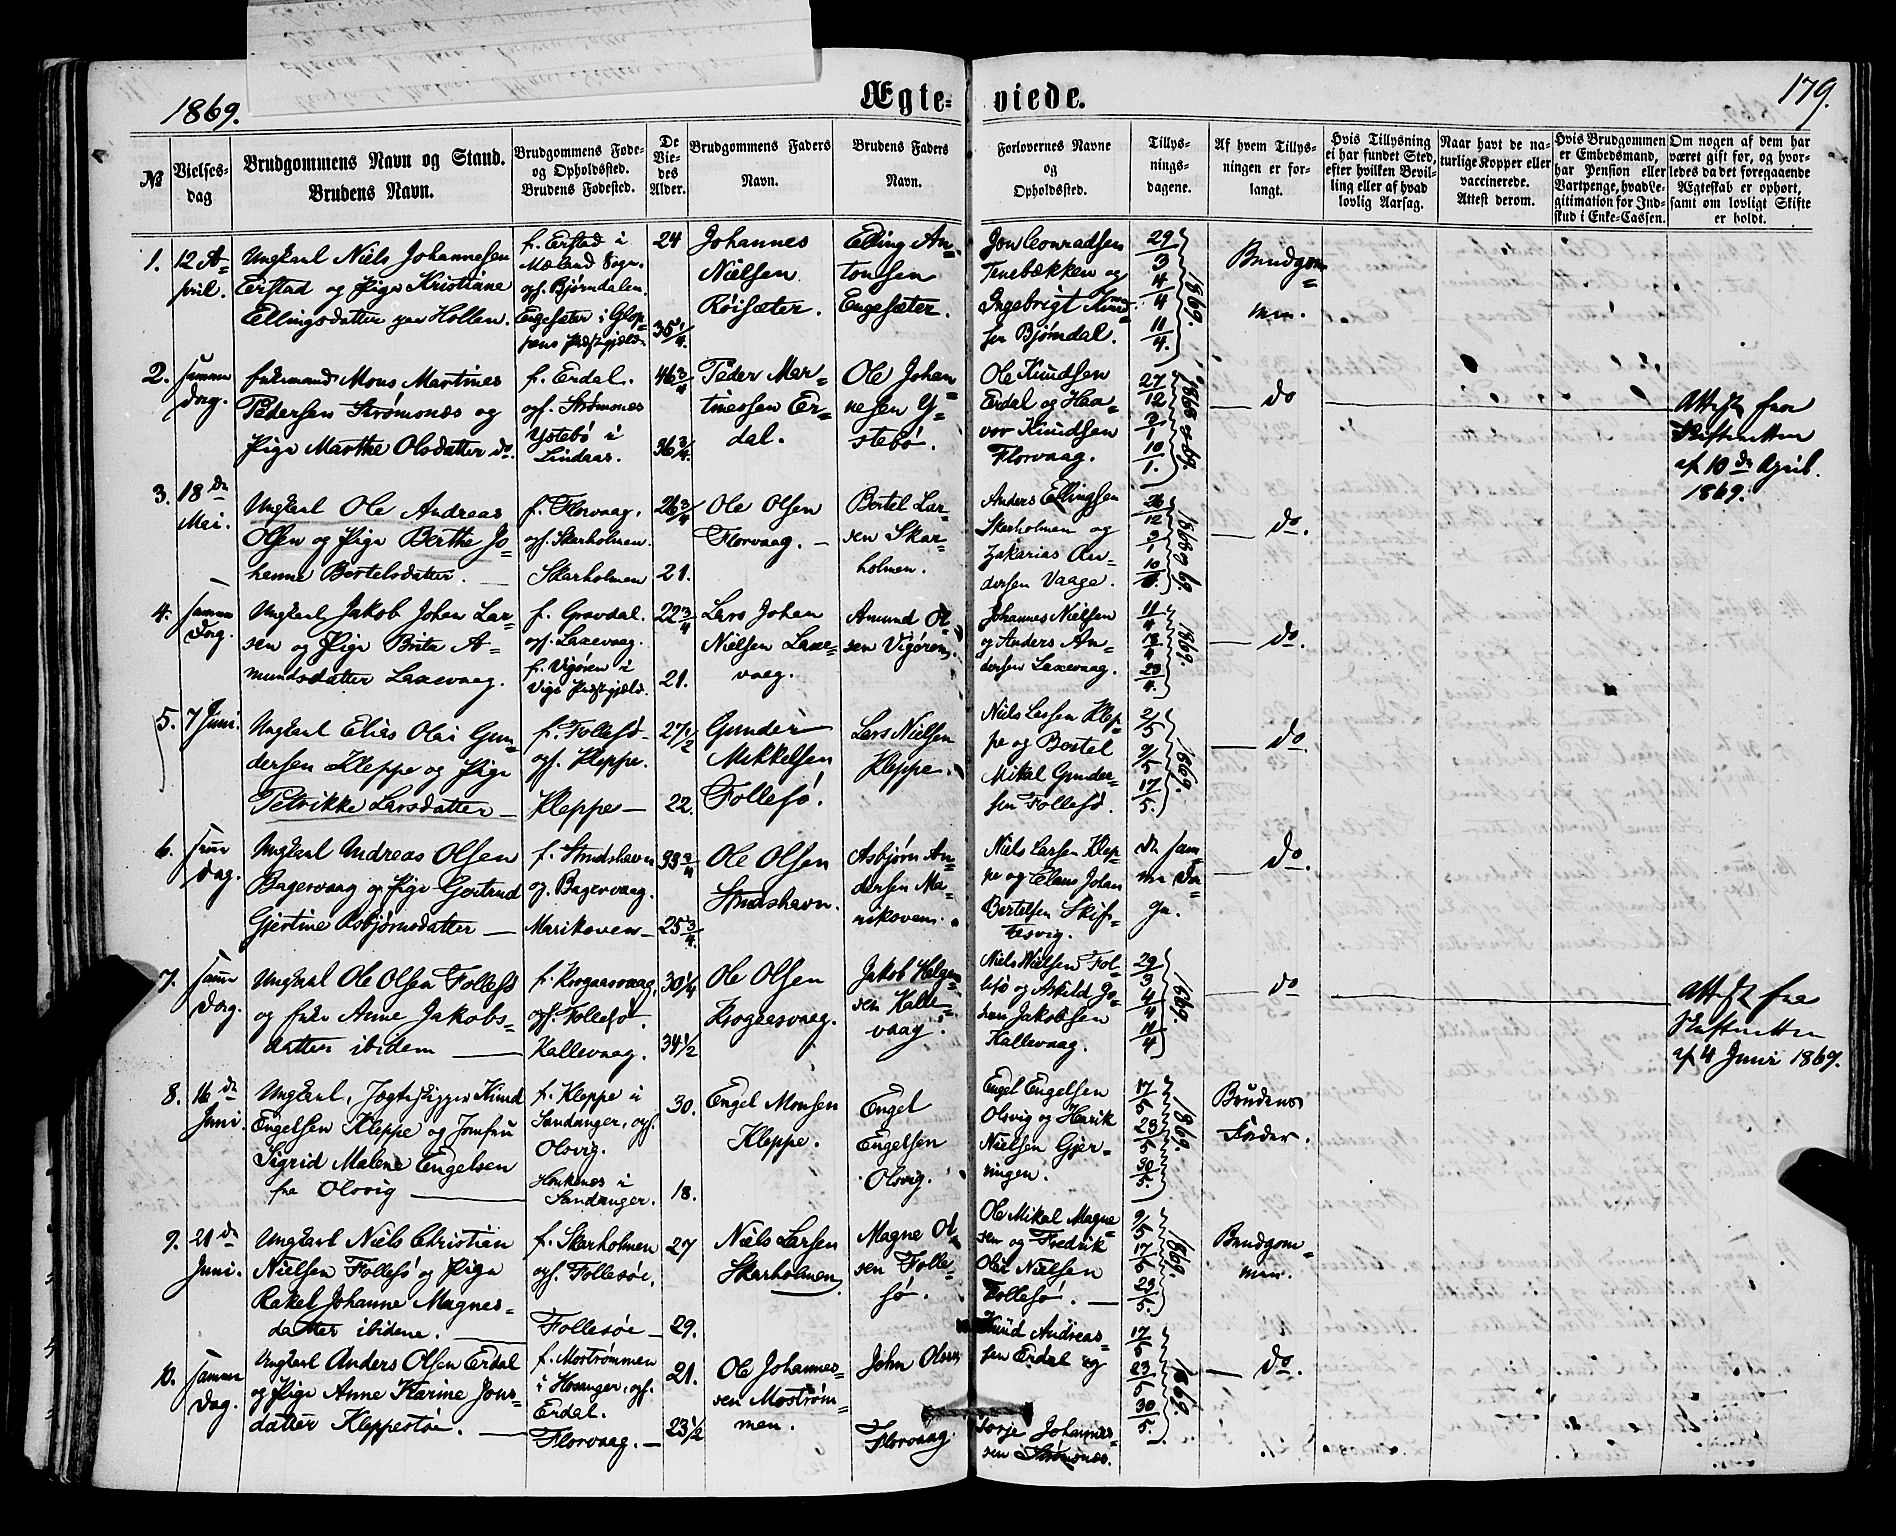 1869.
Ægteviede.
179.
№
Vielsesdag
Brudgommens Navn og Stand.
Brudens Navn.
Brudgommens Føde-
og Opholdssted.
Brudens Fødested.
De
Vie-
des
Alder.
Brudgommens Faders
Navn.
Brudens Faders
Navn.
Forlovernes Navne
og
Opholdssted.
Tillys-
nings-
dagene.
Af hvem Tillys-
ningen er for-
langt.
Hvis Tillysning
ei har fundet Sted,
efter hvilken Bevil-
ling eller af hvad
lovlig Aarsag.
Naar havt de na-
turlige Kopper eller
vaccinerede.
Attest derom.
Hvis Brudgommen
er Embedsmand,
har Pension eller
Vartpenge, hvad Le-
gitimation for Ind-
skud i Enke-Cassen.
Om nogen af dem har
været gift før, og hvor-
ledes da det foregaaende
Ægteskab er ophørt,
samt om lovligt Skifte
er holdt.
1. 12 A-
pril.
Ungkarl Niels Johannesen
Erstad og Pige Kristiane
Ellingsdatter paa Hollen.
f. Erstad i
Mæland Sogn.
opf. Bjørndalen.
Engesæter i Glop-
pens Præstgjæld.
24
35 1/4.
Johannes
Nielsen
Röisæter.
Elling An-
tonsen
Engesæter.
Jon Conradsen
Tenebækken og
Ingebrigt Knud-
sen Bjørndal.
29/3
4/4
11/4.
1869.
Brudgom-
men.
2. samme
Dag.
Enkemand Mons Martines
Pedersen Strømsnæs og
Pige Marthe Olsdatter do.
f. Erdal.
opf. Strømnes
Ystebö i
Lindaas.
46 3/4
36 3/4.
Peder Mar-
tinessen Er-
dal.
Ole Johan-
nesen Y-
stebö.
Ole Knudsen
Erdal og Haa-
vor Knudsen
Florvaag.
27/12
3/1
10/1.
1868 & 69.
do
Attest fra
Skifteretten
af 10 de April.
1869.
3. 18 de
Mai.
Ungkarl Ole Andreas
Olsen og Pige Berthe Jo-
hanne Bertelsdatter.
f. Florvaag.
opf. Skarholmen.
Skarholmen
26 3/4
21.
Ole Olsen
Florvaag.
Bertel Lar-
sen Skar-
holmen.
Anders Ellingsen
Skarholmen og
Zakarias An-
dersen Vaage.
26/12
3/1
1868 & 69.
do.
4. samme
Dag.
Ungkarl Jakob Johan Lar-
sen og Pige Brita A-
mundsdatter Laxevaag.
f. Gravdal.
opf. Laxevaag.
f. Vigören i
Vigs Præstgjæld.
22 3/4
21.
Lars Johan
Nielsen Laxe-
vaag.
Amund Ol-
sen Vigören.
Johannes Nielsen
og Anders An-
dersen Laxevaag.
11/4
18/4
23/4.
1869.
do.
5. 7 Juni.
Ungkarl Elias Olai Gun-
dersen Kleppe og Pige
Petrikke Larsdatter
f. Follesö
opf. Kleppe.
Kleppe
27 1/2
22.
Gunder
Mikkelsen
Follesö.
Lars Nielsen
Kleppe.
Niels Larsen Klep-
pe og Bertel
Mikal Gunder-
sen Follesö.
2/5
9/5
17/5.
1869.
do
6. samme
Dag.
Ungkarl Andreas Olsen
Bagervaag og Pige Gertrud
Gjertine Asbjørnsdatter
f. Strudshavn
og. Bagervaag.
Marikoven
33 3/4
25 3/4.
Ole Olsen
Strudshavn.
Asbjørn An-
dersen Ma-
rikoven.
Niels Larsen Klep-
pe og Claus Johan
Bertelsen Skif-
tesvig.
de sam-
me Da-
ge.
do.
7. samme
Dag.
Ungkarl Ole Olsen Follesö
og Enke Anne Jakobs-
datter ibidem
f. Krogaasvaag,
opf. Follesö.
Kallevaag.
30 1/4
34 1/2
Ole Olsen
Krogaasvaag.
Jakob Helge-
sen Kalle-
vaag.
Niels Nielsen Fol-
lesö og Askild Jo-
han Jakobsen
Kallevaag.
29/3
4/4
11/4
1869.
do
Attest fra
Skifteretten
af 4 Juni 1869.
8. 16 de
Juni.
Ungkarl, Jægteskipper Knud
Engelsen Kleppe og Jomfru
Sigrid Malene Engelsen
fra Olsvig
f. Kleppe i
Sandanger, opf.
Olsvig.
Honkenes i
Sandanger.
30.
18.
Engel Monsen
Kleppe.
Engel
Engelsen
Olsvig.
Engel Engelsen
Olsvig og Henrik
Nielsen Gjer-
ningen.
17/5
23/5
30/5.
1869.
Brudens
Fader.
9. 21 de
Juni.
Ungkarl Niels Christian
Nielsen Follesö og Pige
Rakel Johanne Magnes-
datter ibidem.
f. Skarholmen
opf. Follesöe.
Follesöe
27
29.
Niels Larsen
Skarholmen.
Magne Ol-
sen Folle-
sö.
Ole Mikal Magne-
sen og Fredrik
Olai Nielsen
Follesö.
9/5
17/5
23/5.
1869.
Brudgom-
men.
10. samme
Dag.
Ungkarl Anders Olsen Erdal
og Pige Anne Karine Jons-
datter Kleppestöe.
f. Mostrømmen
i Hosanger, opf.
Erdal.
Florvaag.
21.
23 1/2
Ole Johannes-
sen Moström-
men.
John Olsen
Florvaag.
Knud Andreas-
sen Erdal og
Torje Johannes-
sen Strømsnæs.
17/5
23/5
30/5.
1869
do.